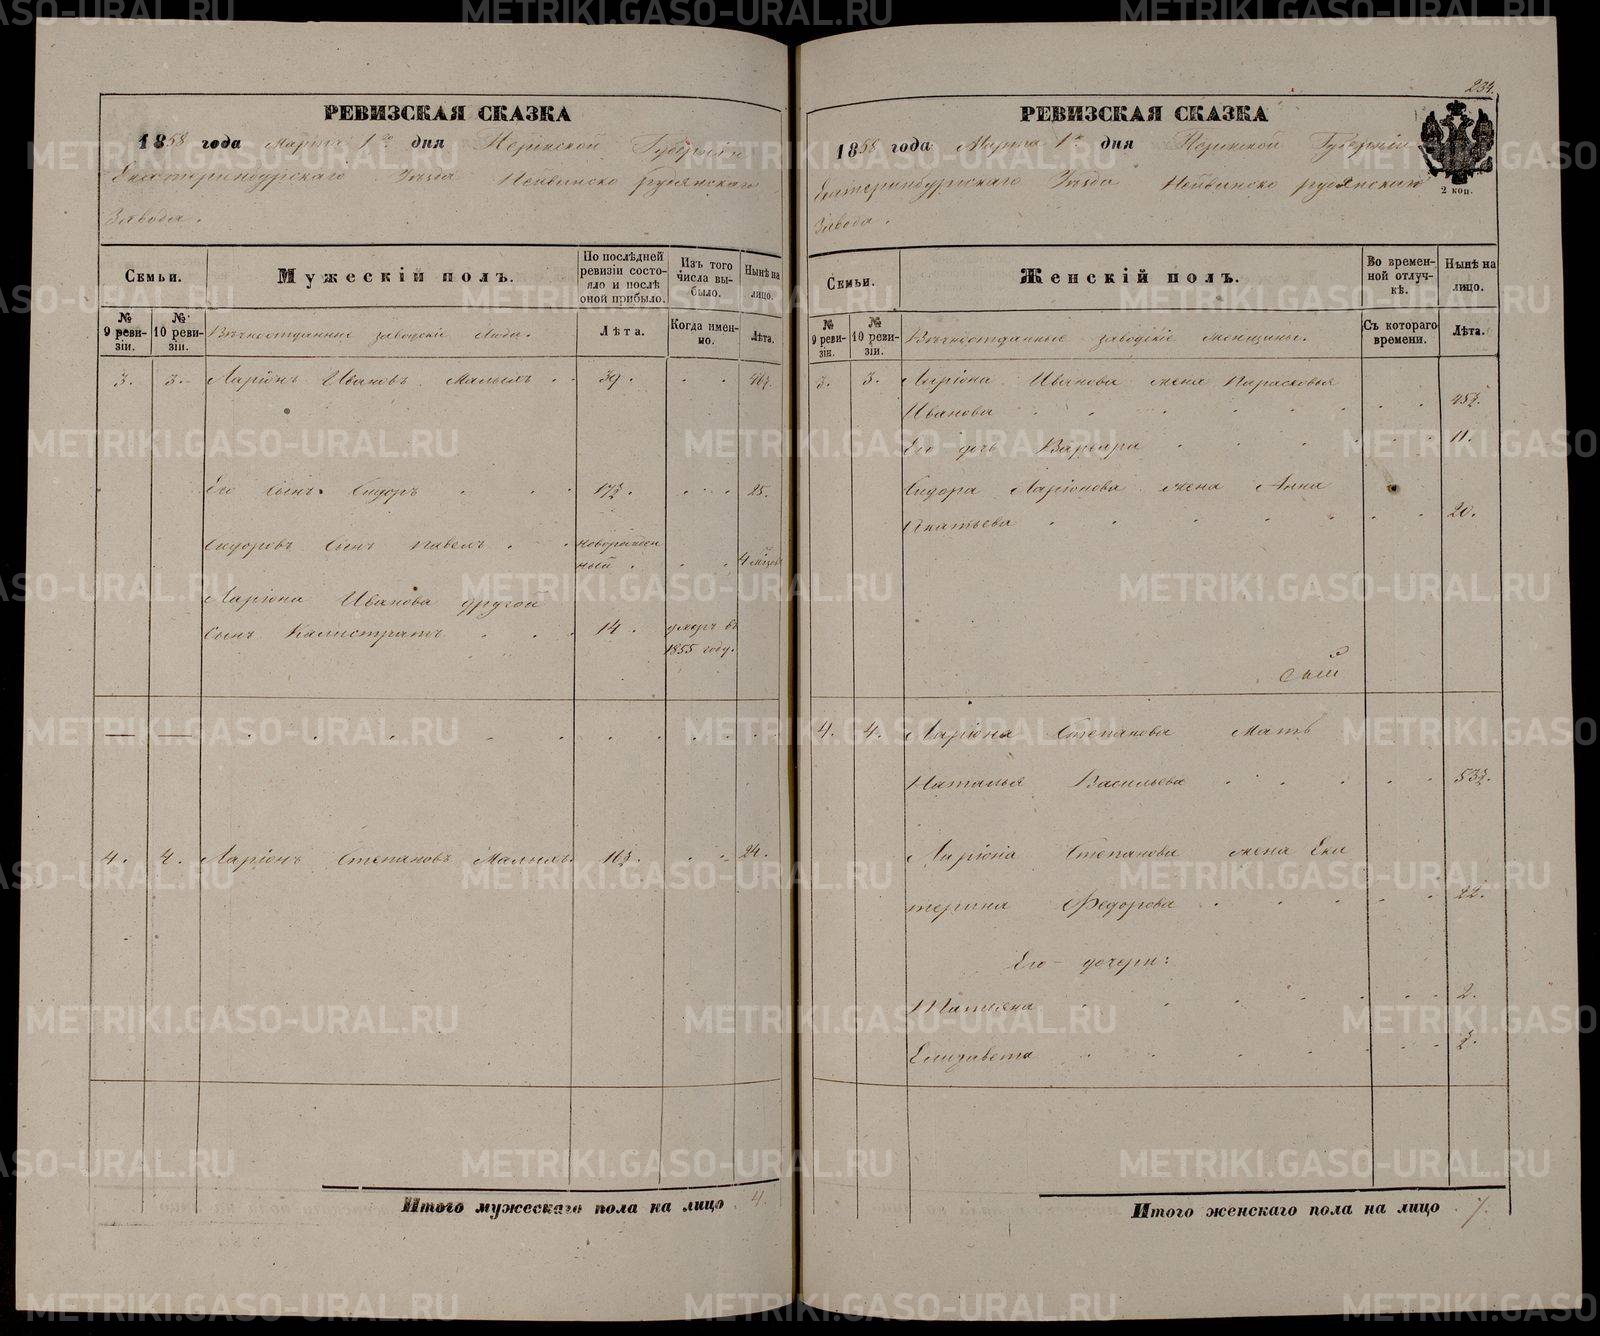 РЕВИЗСКАЯ СКАЗКА
1858 года Марта 1го дня Пермской Губерніи
Екатеринбургскаго Уѣзда Нейвинско рудянскаго
Завода.
Семьи.
Мужескій полъ.
По послѣдней ревизіи состояло и послѣ оной прибыло.
Изъ того числа выбыло.
Нынѣ на лицо.
№ 9 ревизіи.
№ 10 ревизіи.
Вѣчноотданные заводскіе люди.
Лѣта.
Когда именно.
Лѣта.
3. 3. Ларіонъ Ивановъ 39.
Его сынъ Сидоръ 17½. 25.
Сидоровъ сынъ Павелъ новорожден
ный 4 мѣсяц
Ларіона Иванова другой
сынъ Калистратъ 14. умеръ въ
1855 году.
4. 4. Ларіонъ Степановъ 24.
Итого мужескаго пола на лицо 4.
234.
РЕВИЗСКАЯ СКАЗКА
1858 года Марта 1го дня Пермской Губерніи
Екатеринбургскаго Уѣзда Нейвинско рудянскаго
Завода.
2 коп.
Семьи.
Женскій полъ.
Во временной отлучкѣ.
Нынѣ на лицо.
№ 9 ревизіи.
№ 10 ревизіи.
Вѣчноотданные заводскіе женщины.
Съ котораго времени.
Лѣта.
3. 3. Ларіона Иванова жена Парасковья
Иванова 45½.
Его дочь Варвара 11.
Сидора Ларіонова жена Анна
Игнатьева 20.
4. 4. Ларіона Степанова мать
Наталья Васильева 53½.
Ларіона Степанова жена Ека
терина Федорова 22.
Его дочери:
Татьяна 2.
Елизавета ½.
Итого женскаго пола на лицо 7.
METRIKI.GASO-URAL.RU